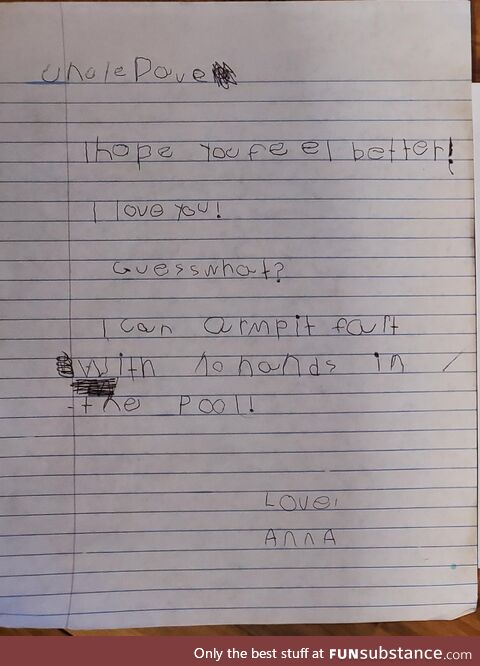 uncle Dave
I hope you feel better!
I love you!
Guess what?
I can armpit fart
with no hands in
the pool!
Love,
AnnA
Only the best stuff at FUNsubstance.com